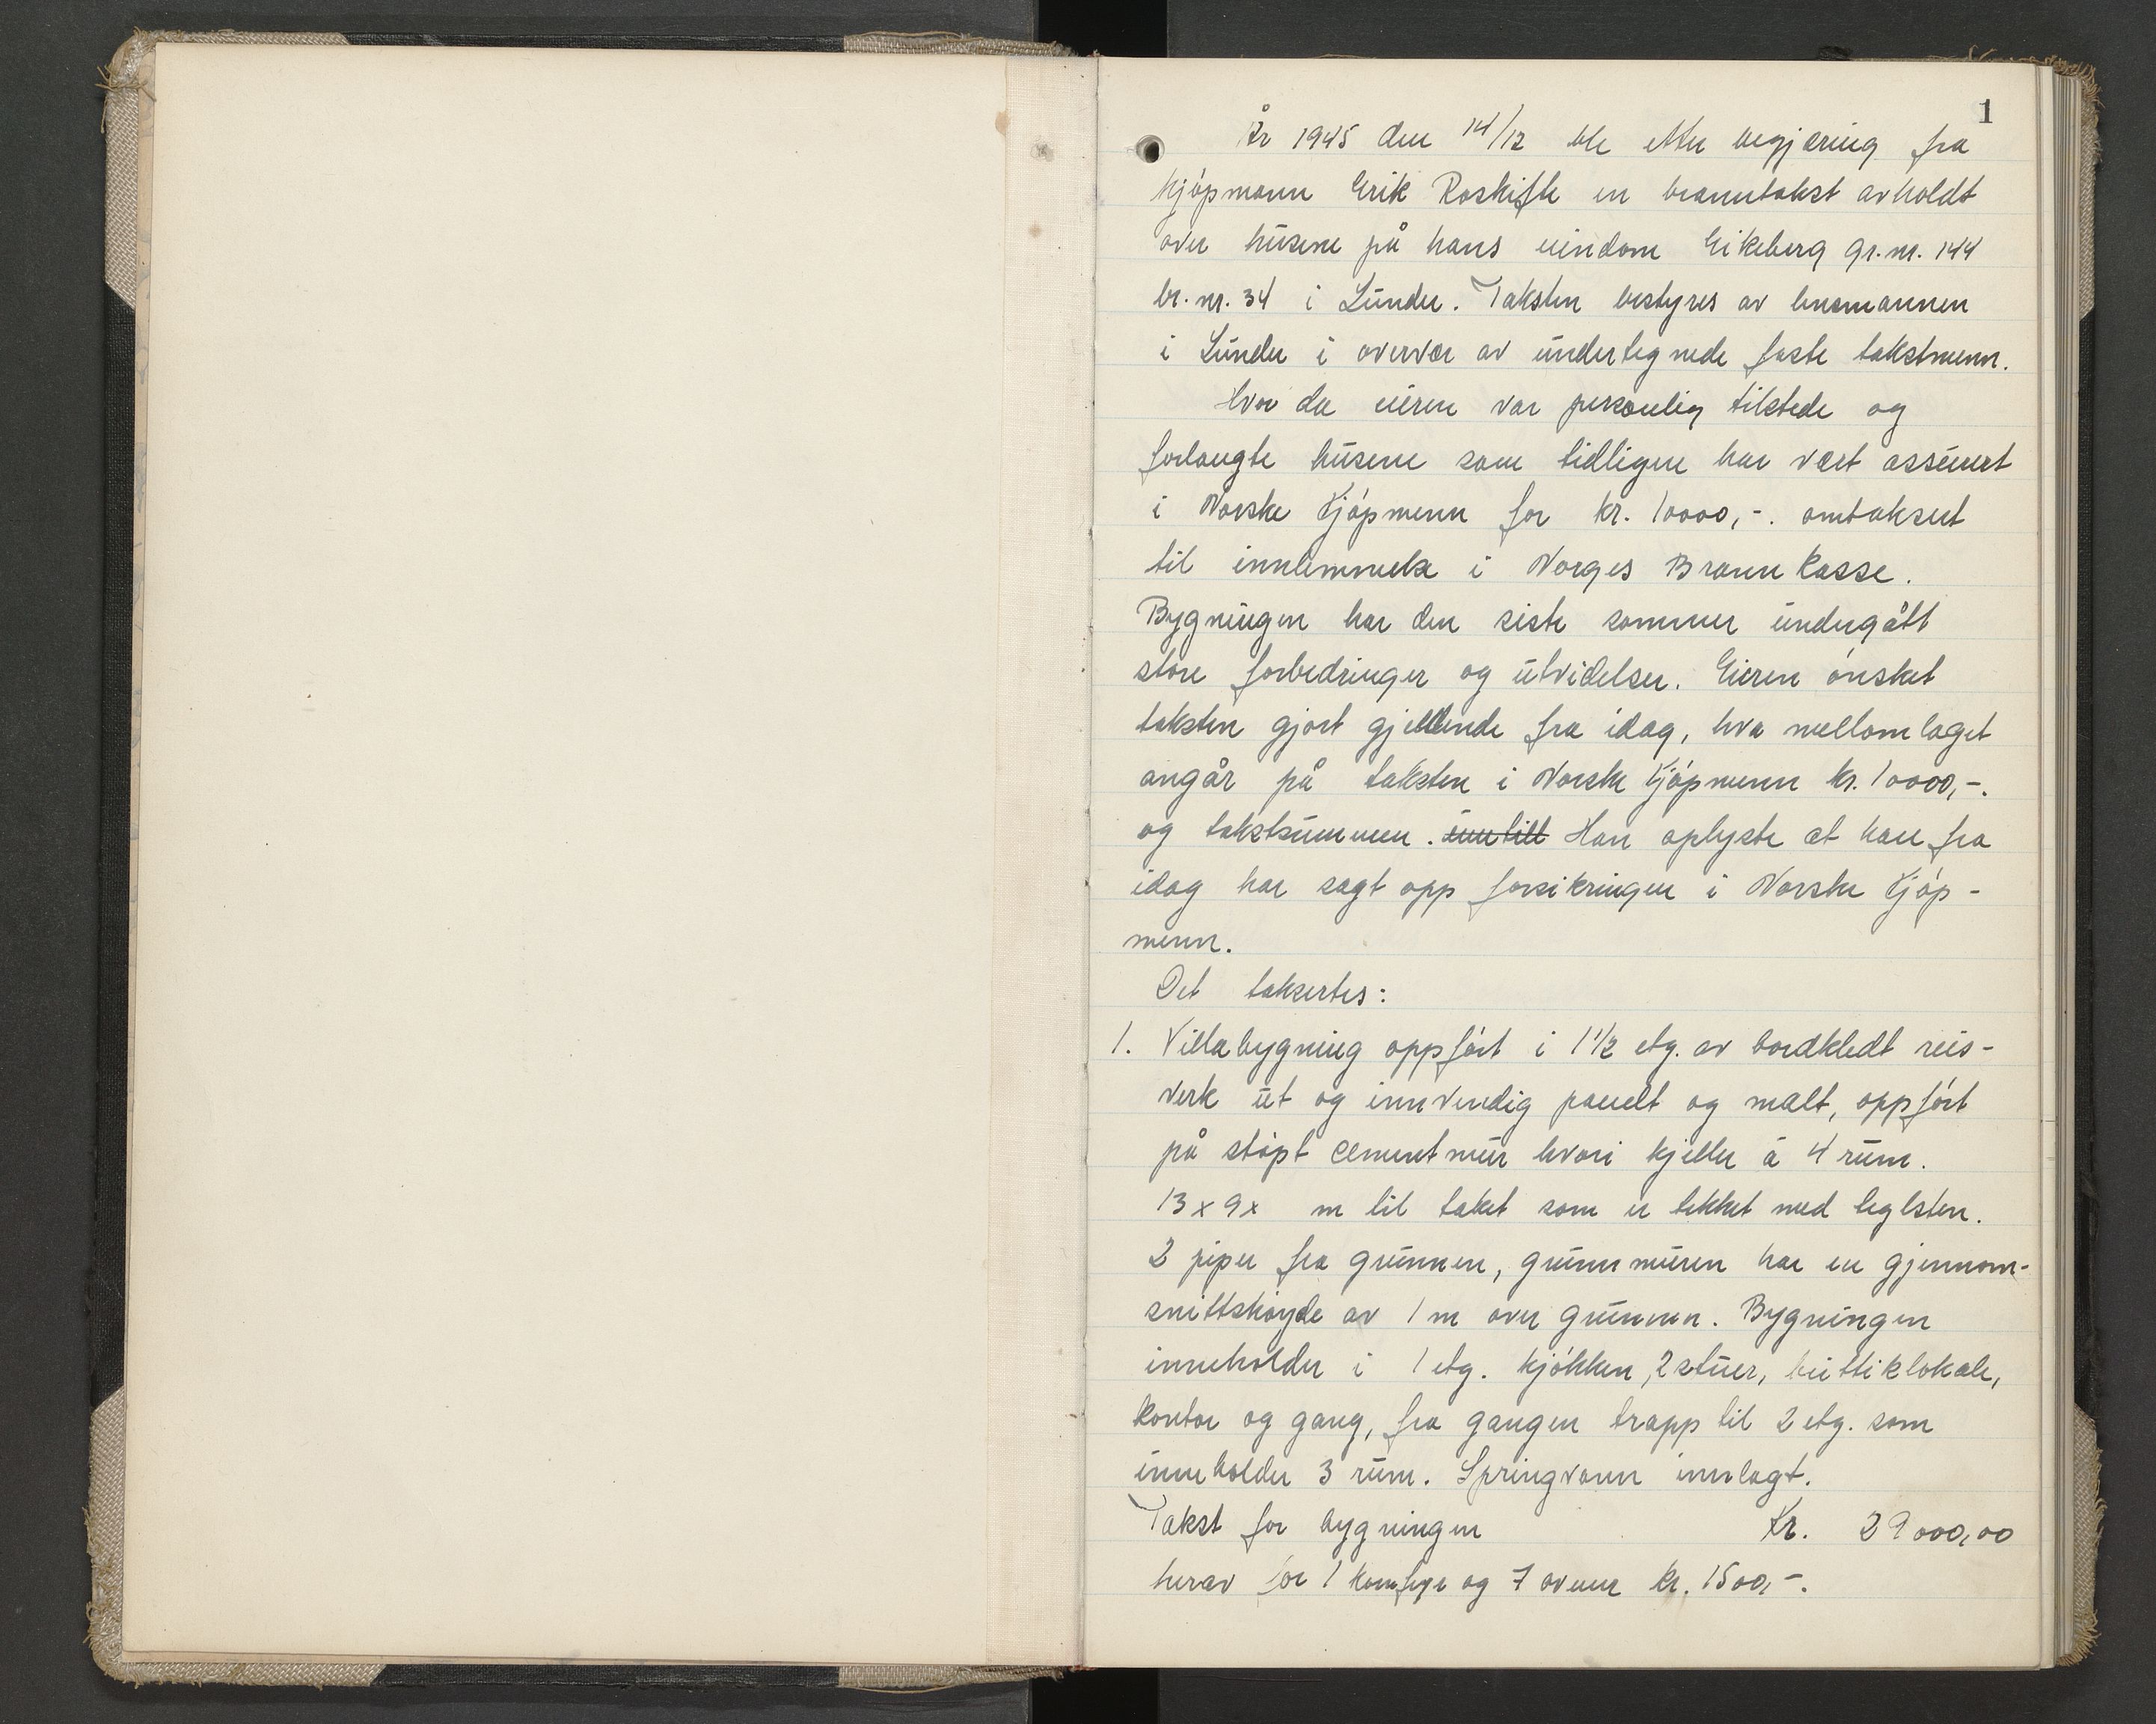 1
År 1945 den 14/12 ble etter begjæring fra
kjøpmann Erik Roskifte en branntakst avholdt
over husene på hans eiendom Eikeberg gr.nr. 144
br.nr. 34 i Lunder. Taksten bestyres av lensmannen
i Lunder i overvær av undertegnede faste takstmenn.
Hvor da eieren var personlig tilstede og
forlangte husene som tidligere har vært assurert
i Norske Kjøpmenn for kr. 10000,-. omtaksert
til innlemmelse i Norges Brannkasse.
Bygningen har den siste sommer undergått
store forbedringer og utvidelser. Eieren ønsket
taksten gjort gjeldende fra idag, hva mellomlaget
angår på taksten i Norske Kjøpmenn kr. 10000,-.
og takstsummen. inntill Han oplyste at han fra
idag har sagt opp forsikringen i Norske Kjøp-
menn.
Det takstertes:
1. Villabygning oppført i 1 1/2 etg. av bordkledt reis-
verk ut og innvendig panelt og malt, oppført
på støpt cementmur hvori kjeller à 4 rum.
13 x 9 x m til taket som er tekket med teglsten.
2 piper fra grunnen, grunnmuren har en gjennom-
snittshøyde av 1 m over grunnen. Bygningen
inneholder i 1 etg. kjøkken, 2 stuer, buttiklokale,
kontor og gang, fra gangen trapp til 2 etg. som
inneholder 3 rum. Springvann innlagt.
Takst for bygningen Kr. 29000,00
herav for 1 komfyr og 7 ovner kr. 1500,-.